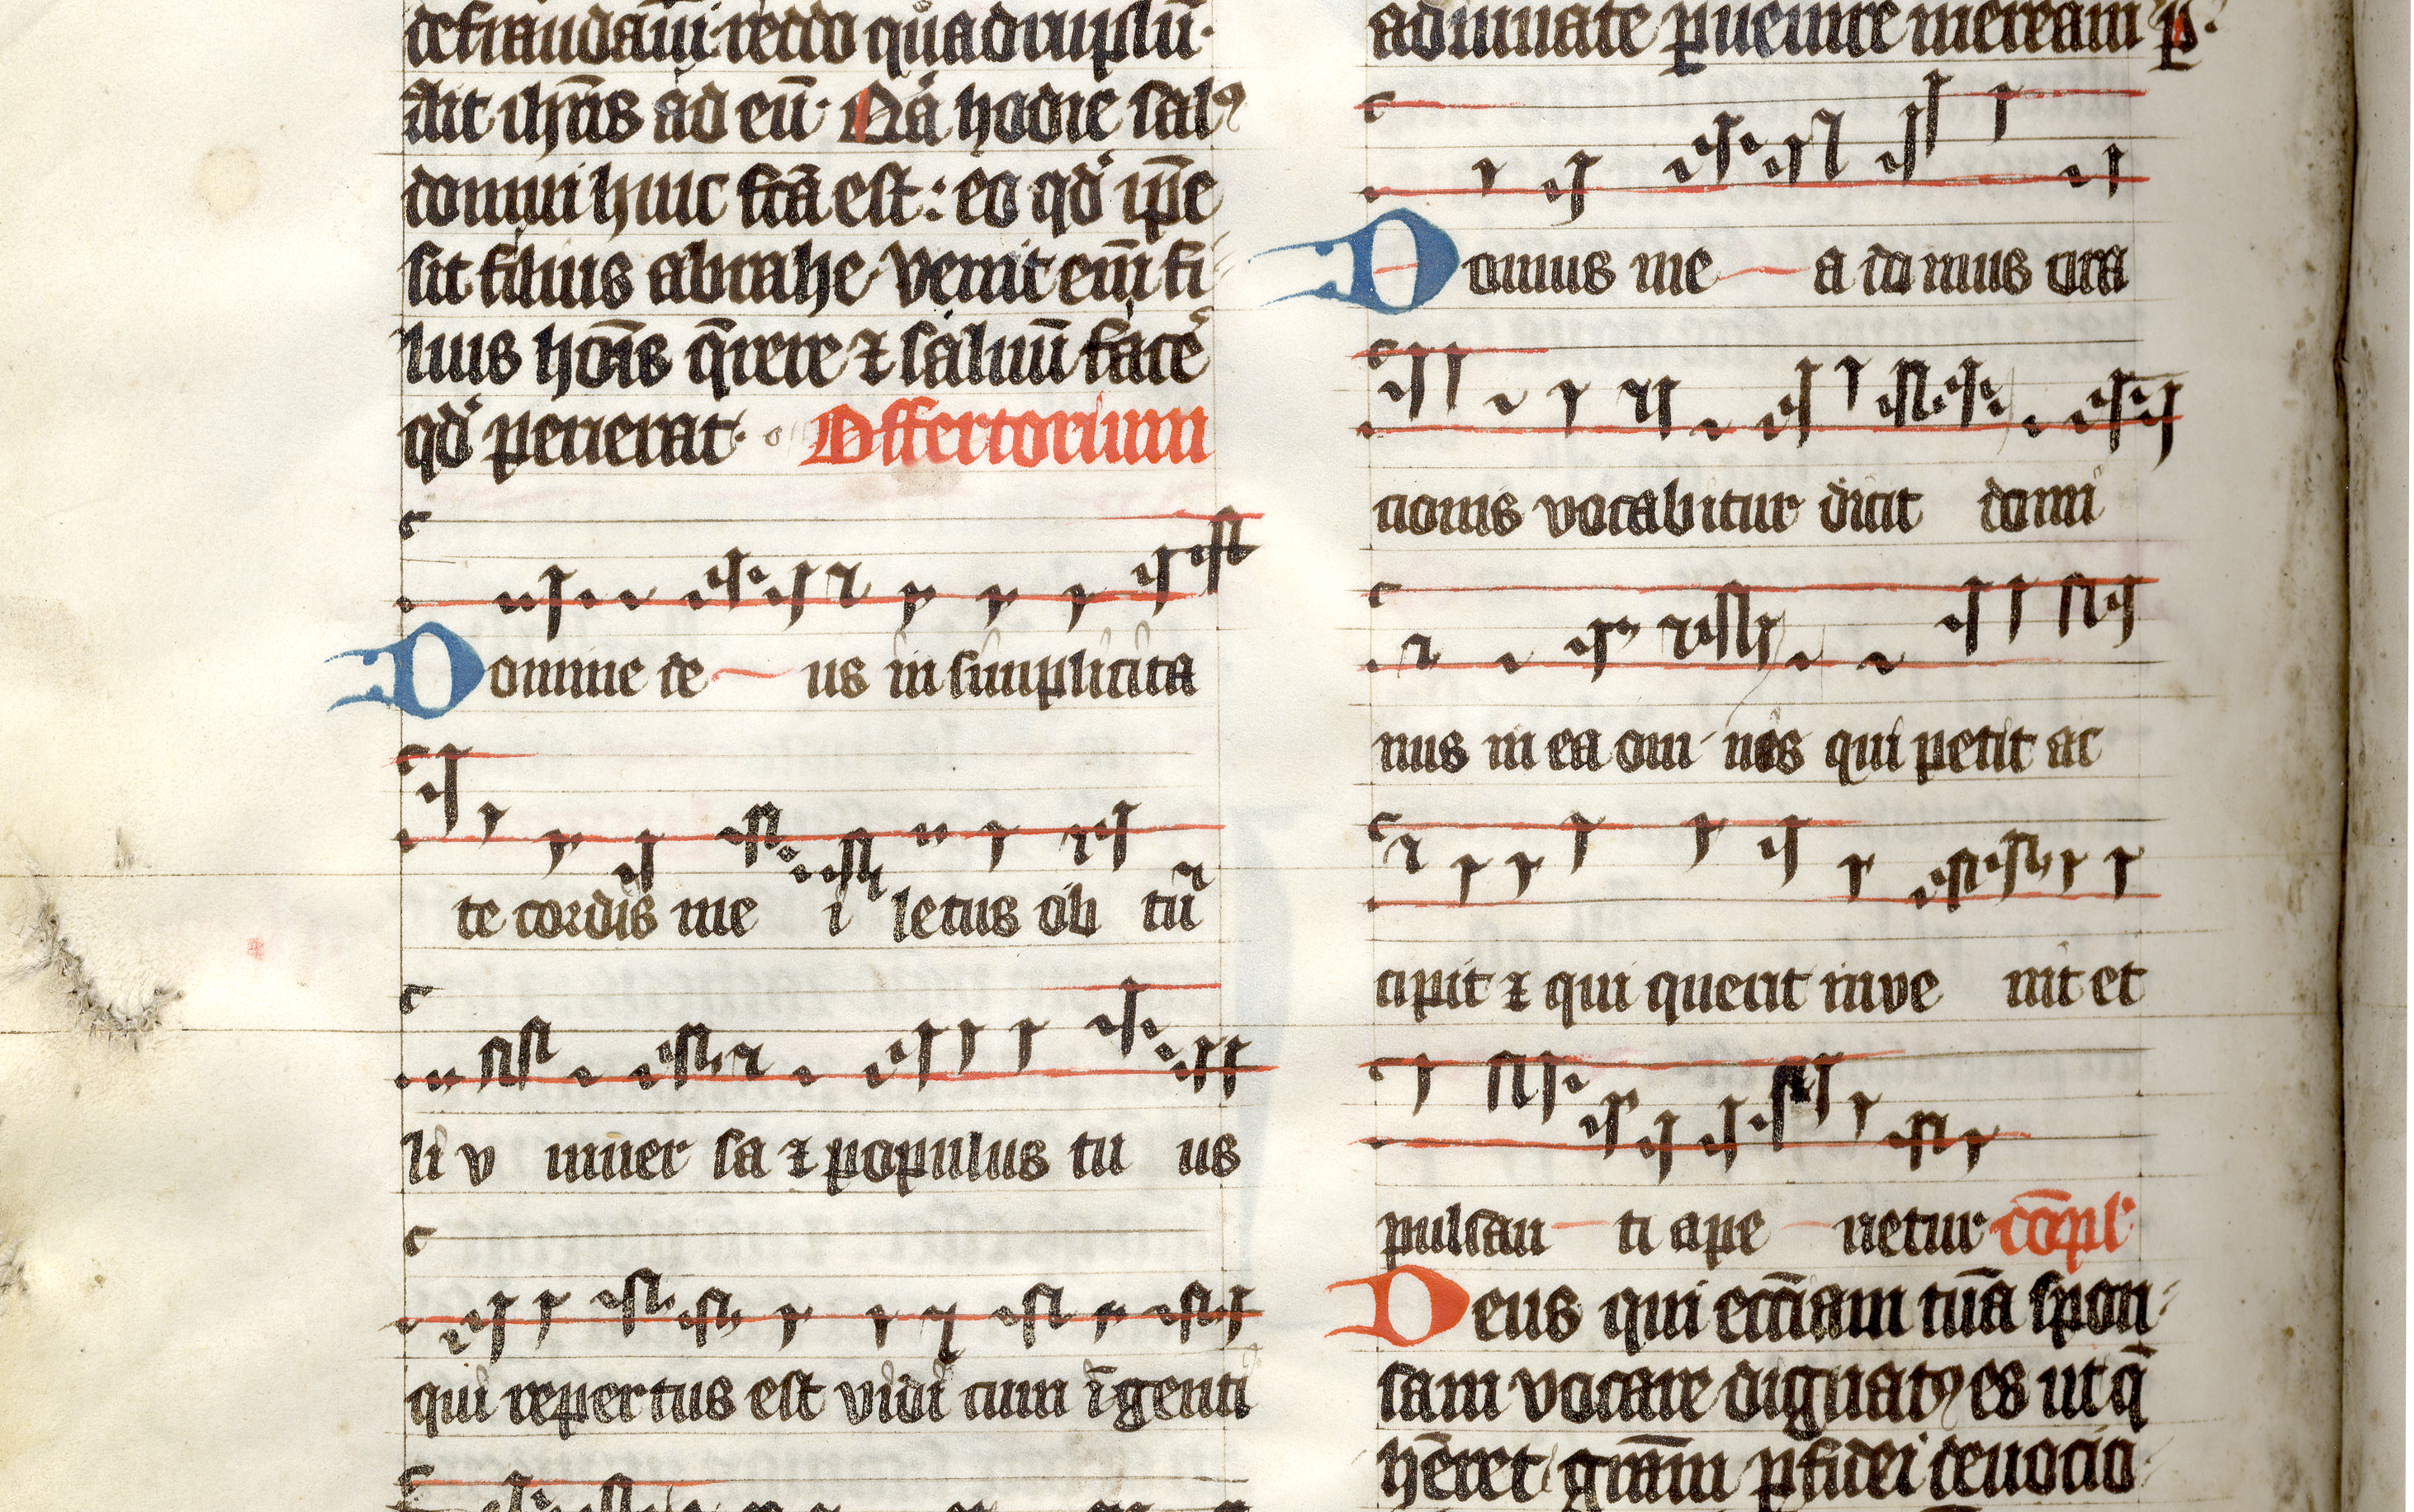 defraudaui· reddo quadruplū·
Ait ih̄us ad eū· Q̄a hodie salꝰ
domui huic fc̄a est: eo qd̓ ip̄e
sit filius abrahe· Venit eni̅ fi
lius hoi̅s q̄rere ⁊ saluū facē
qd̓ perierat· Offertorium
Domine de us in simplicita
te cordis me i letus ob tu
li v niuer sa ⁊ populus tu us
qui repertus est vidi cum īgenti
adiuuate ꝑuenire meream̄ p·
Domus me a domus ora
cionis vocabitur dicit domi
nus in ea om nis qui petit ac
cipit ⁊ qui querit inve nit et
pulsan ti ape rietur cōpl̓
Deus qui ecc̄iam tuā spon
sam vocare dignatꝰ es ut q̄
hēret gr̄am ꝑ fidei deuocio